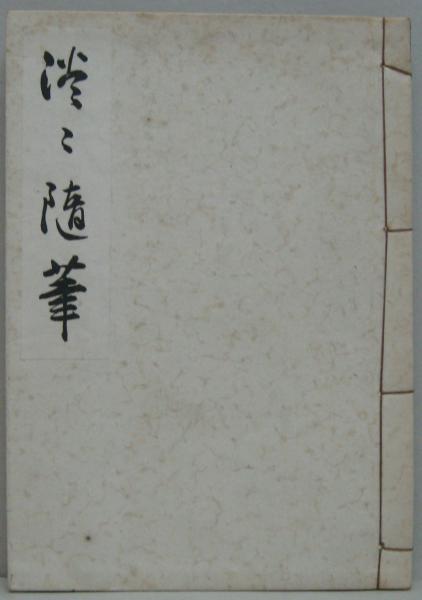 淡々随筆